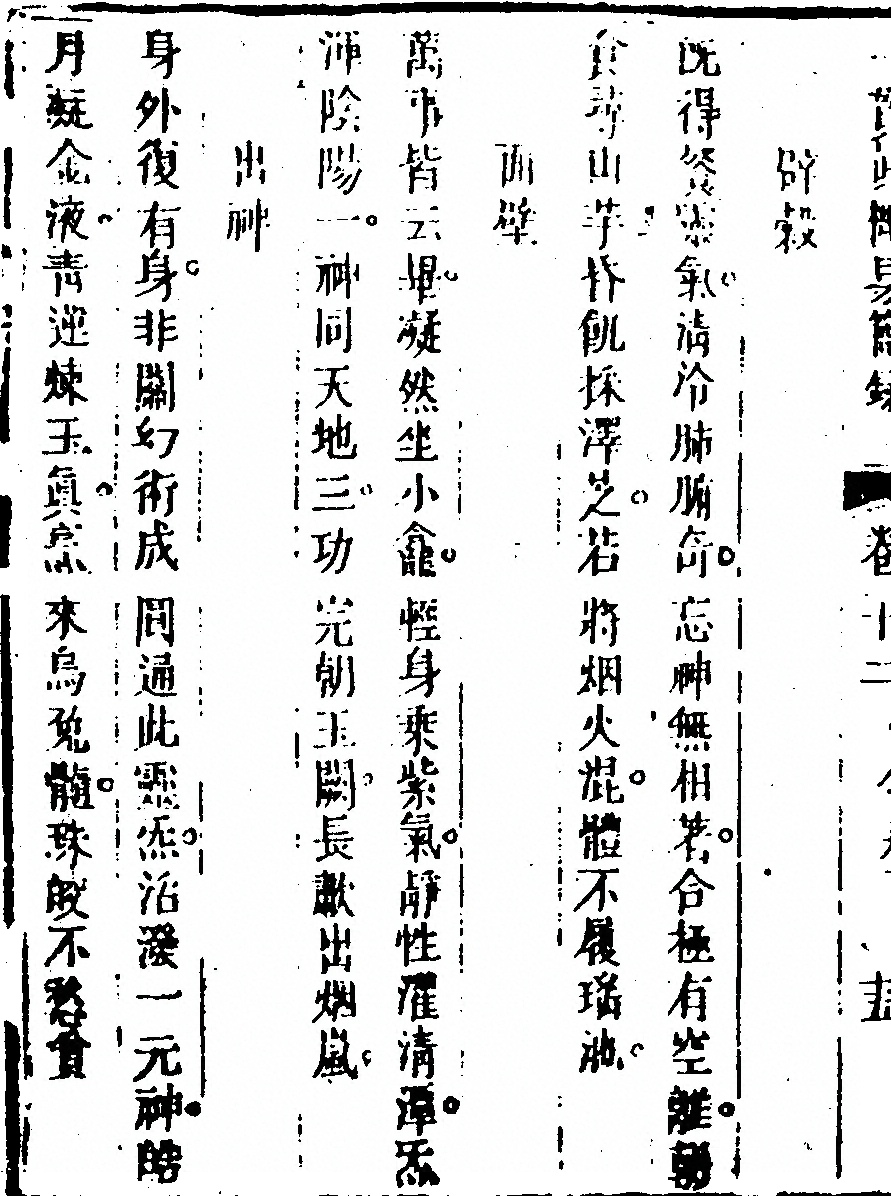 辟穀
既得餐靈氣清冷肺腑奇忘神無相著合極有空離朝
食尋山芋昏飢採澤芝若將烟火混體不履瑤池
面壁
萬事皆云畢凝然坐小龕輕身乘紫氣靜性濯清潭炁
渾陰陽一神同天地三功完朝玉闕長歗出烟嵐
出神
身外復有身非關幻術成圓通此靈炁活潑一元神皓
月凝金液青蓮煉玉眞烹來烏兔髓珠皎不愁貧